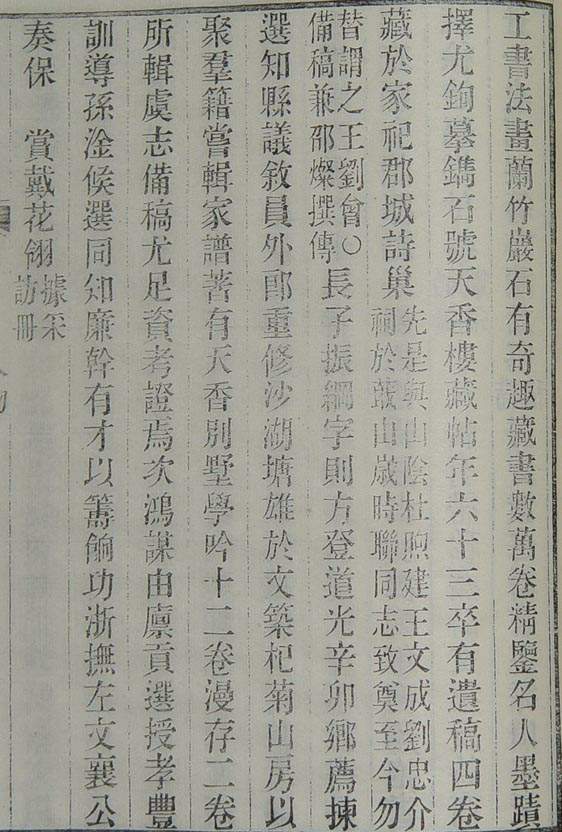 工書法畫蘭竹巖石有奇趣藏書數萬卷精鑒名人墨蹟
擇尤鉤摹鐫石號天香樓藏帖年六十三卒有遺稿四卷
藏於家祀郡城詩巢
先是與山陰杜煦建王文成劉忠介
祠於蕺山歲時聯同志致奠至今勿
替謂之王劉會〇
備稿兼邵燦撰傳
長子振綱字則方登道光辛卯鄉薦揀
選知縣議敘員外郎重修沙湖塘雄於文築杞菊山房以
聚羣籍嘗輯家譜著有天香別墅學吟十二卷漫存二卷
所輯虞志備稿尤足資考證焉次鴻謀由廩貢選授孝豐
訓導孫淦候選同知廉幹有才以籌餉功浙撫左文襄公
奏保　賞戴花翎
據采
訪冊